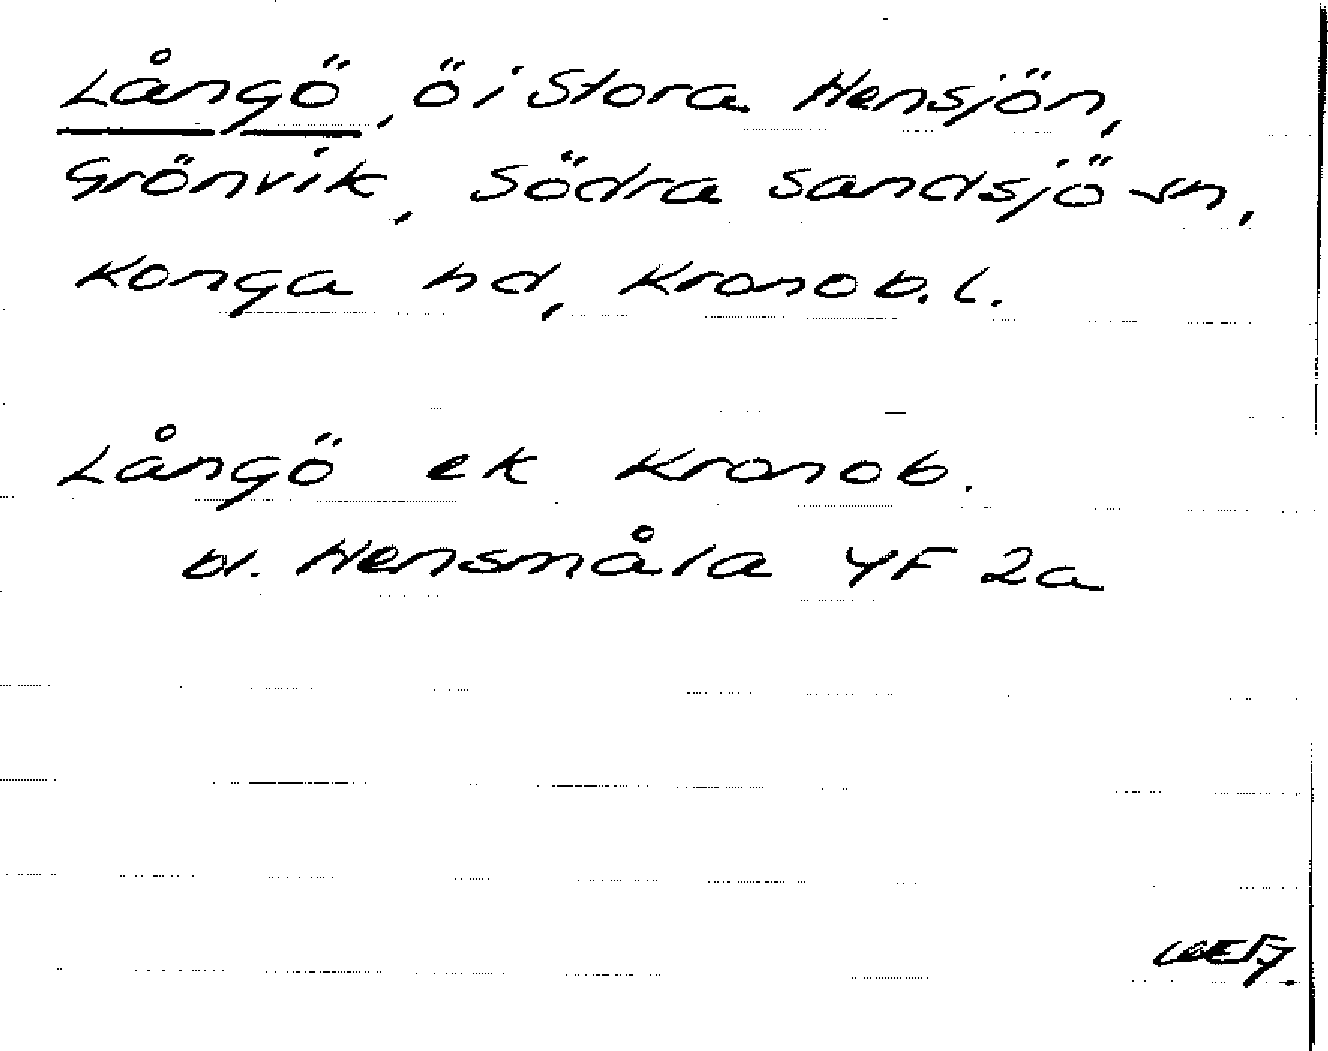 Långö, ö i Stora Hensjön,
Grönvik, Södra Sandsjö sn,
Konga hd, Kronob. l.
Långö ek Kronob.
bl. Hensmåla YF 2a